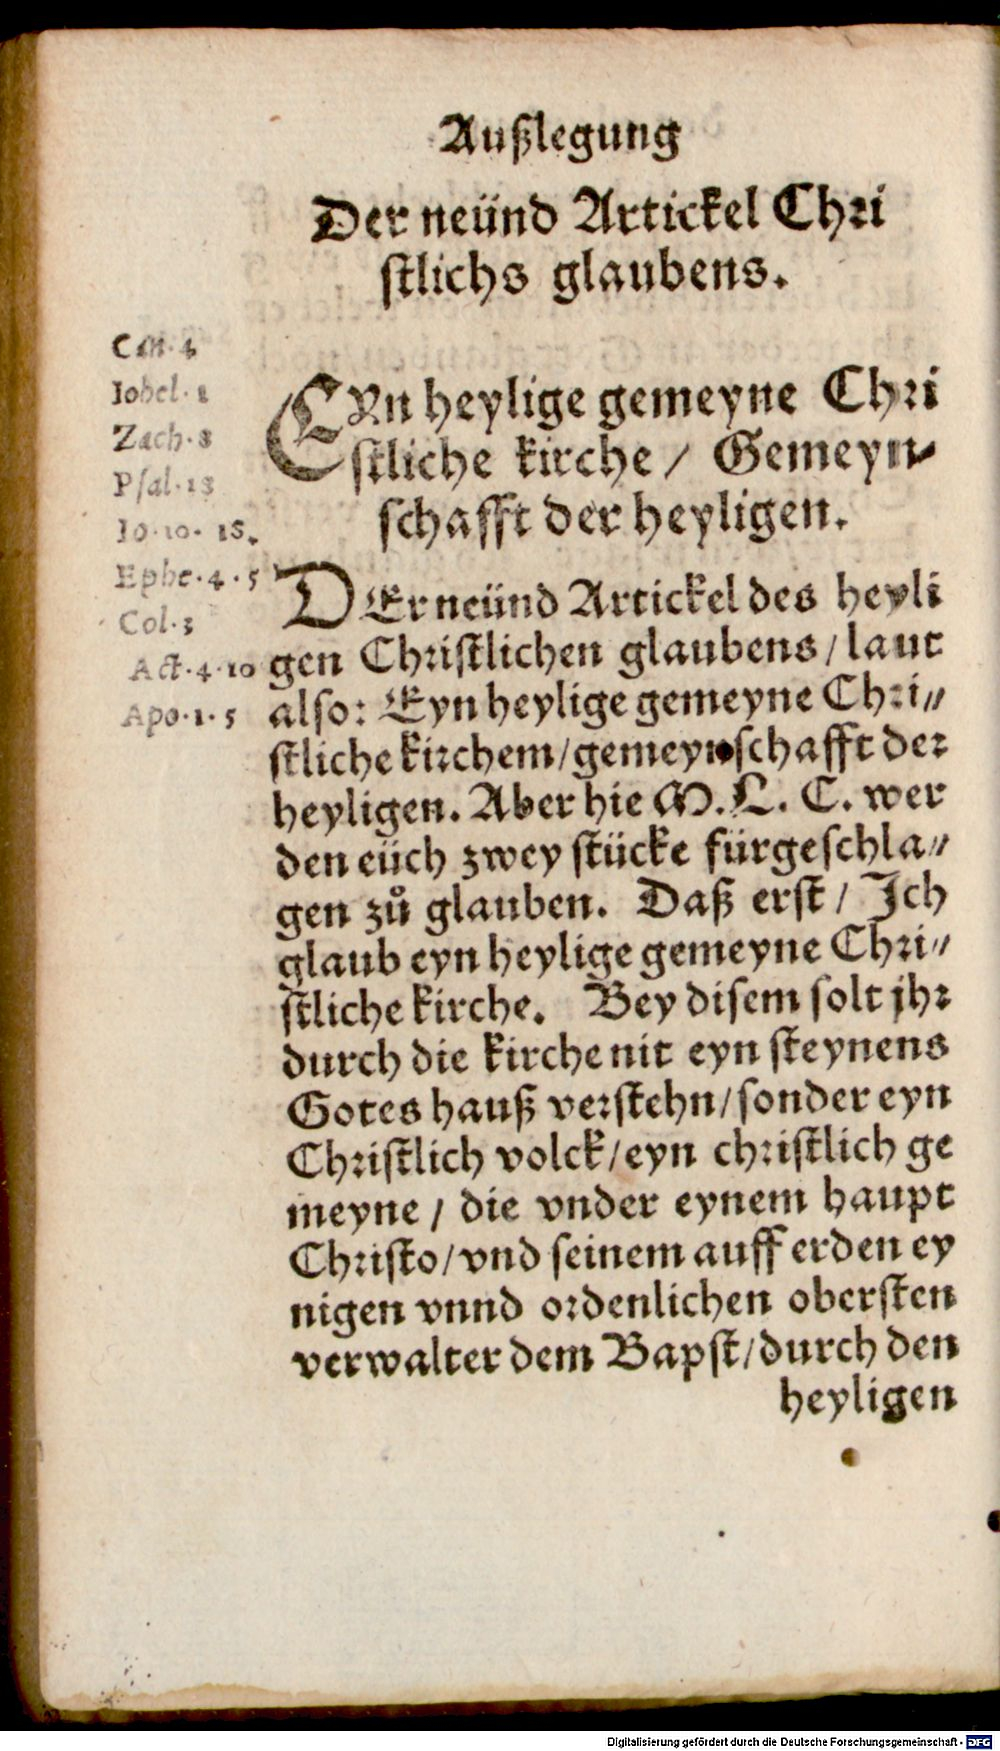 Außlegung
Der neünd Artickel Chri
stlichs glaubens.
Can. 4
Iohel. 2
Zach. 8
Psal. 13
Io. 10. 16.
Ephe. 4. 5
Col. 3
Act. 4. 10
Apo. 1. 5
EYn heylige gemeyne Chri
stliche kirche / Gemeyn-
schafft der heyligen.
DEr neünd Artickel des heyli
gen Christlichen glaubens / laut
also: Eyn heylige gemeyne Chri//
stliche kirchem / gemeynschafft der
heyligen. Aber hie M. L. C. wer
den eüch zwey stücke fürgeschla//
gen zů glauben. Daß erst / Ich
glaub eyn heylige gemeyne Chri//
stliche kirche. Bey disem solt jhr
durch die kirche nit eyn steynens
Gotes hauß verstehn / sonder eyn
Christlich volck / eyn christlich ge
meyne / die vnder eynem haupt
Christo / vnd seinem auff erden ey
nigen vnnd ordenlichen obersten
verwalter dem Bapst / durch den
heyligen
Digitalisierung gefördert durch die Deutsche Forschungsgemeinschaft - DFG